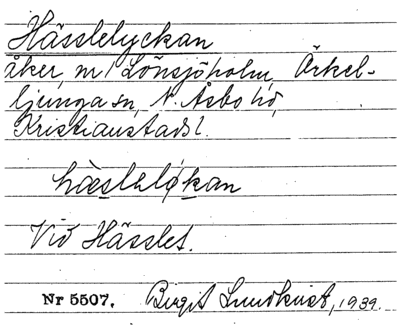 Hässlelyckan
åker, nr 1 Lönsjöholm, Örkel-
ljunga sn, N. Åsbo hd,
Kristianstads l.
hæsleløkan
Vid Hässlet.
Nr 5507. Birgit Lundkvist, 1939.